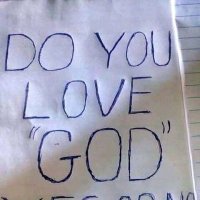 DO YOU
LOVE
"GOD"